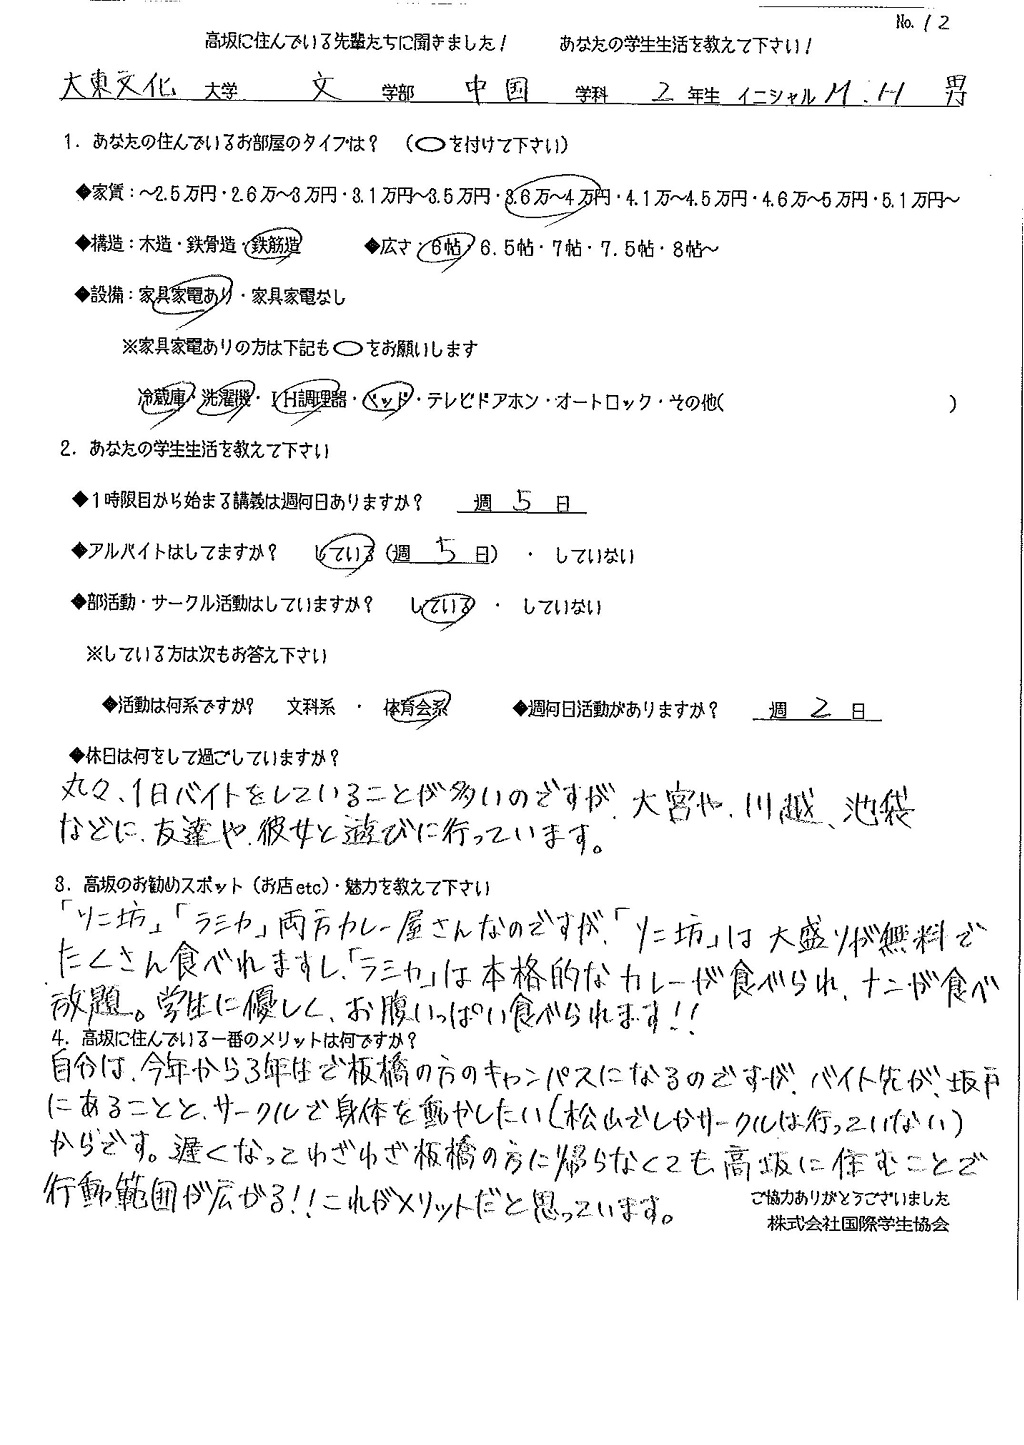 No. 12
高坂に住んでいる先輩たちに聞きました！　あなたの学生生活を教えて下さい！
大東文化 大学 文 学部 中国 学科 2 年生 イニシャル M.H 男
1．あなたの住んでいるお部屋のタイプは？（○を付けて下さい）
◆家賃：～2.5万円・2.6万～3万円・3.1万円～3.5万円・3.6万～4万円・4.1万～4.5万円・4.6万～5万円・5.1万円～
◆構造：木造・鉄骨造・鉄筋造　◆広さ：6帖・6.5帖・7帖・7.5帖・8帖～
◆設備：家具家電あり・家具家電なし
※家具家電ありの方は下記も○をお願いします
冷蔵庫・洗濯機・IH調理器・ベッド・テレビドアホン・オートロック・その他(　)
2．あなたの学生生活を教えて下さい
◆1時限目から始まる講義は週何日ありますか？　週 5 日
◆アルバイトはしてますか？　している（週 5 日）・していない
◆部活動・サークル活動はしていますか？　している・していない
※している方は次もお答え下さい
◆活動は何系ですか？　文科系・体育会系　◆週何日活動がありますか？　週 2 日
◆休日は何をして過ごしていますか？
丸々、1日バイトをしていることが多いのですが、大宮や、川越、池袋
などに、友達や、彼女と遊びに行っています。
3．高坂のお勧めスポット（お店etc）・魅力を教えて下さい
「リニ坊」「ラミカ」両方カレー屋さんなのですが、「リニ坊」は大盛りが無料で
たくさん食べれますし、「ラミカ」は本格的なカレーが食べられ、ナンが食べ
放題。学生に優しく、お腹いっぱい食べられます！！
4．高坂に住んでいる一番のメリットは何ですか？
自分は、今年から3年生で板橋の方のキャンパスになるのですが、バイト先が、坂戸
にあることと、サークルで身体を動かしたい（松山でしかサークルは行っていない）
からです。遅くなってわざわざ板橋の方に帰らなくても高坂に住むことで
行動範囲が広がる！！これがメリットだと思っています。
ご協力ありがとうございました
株式会社国際学生協会